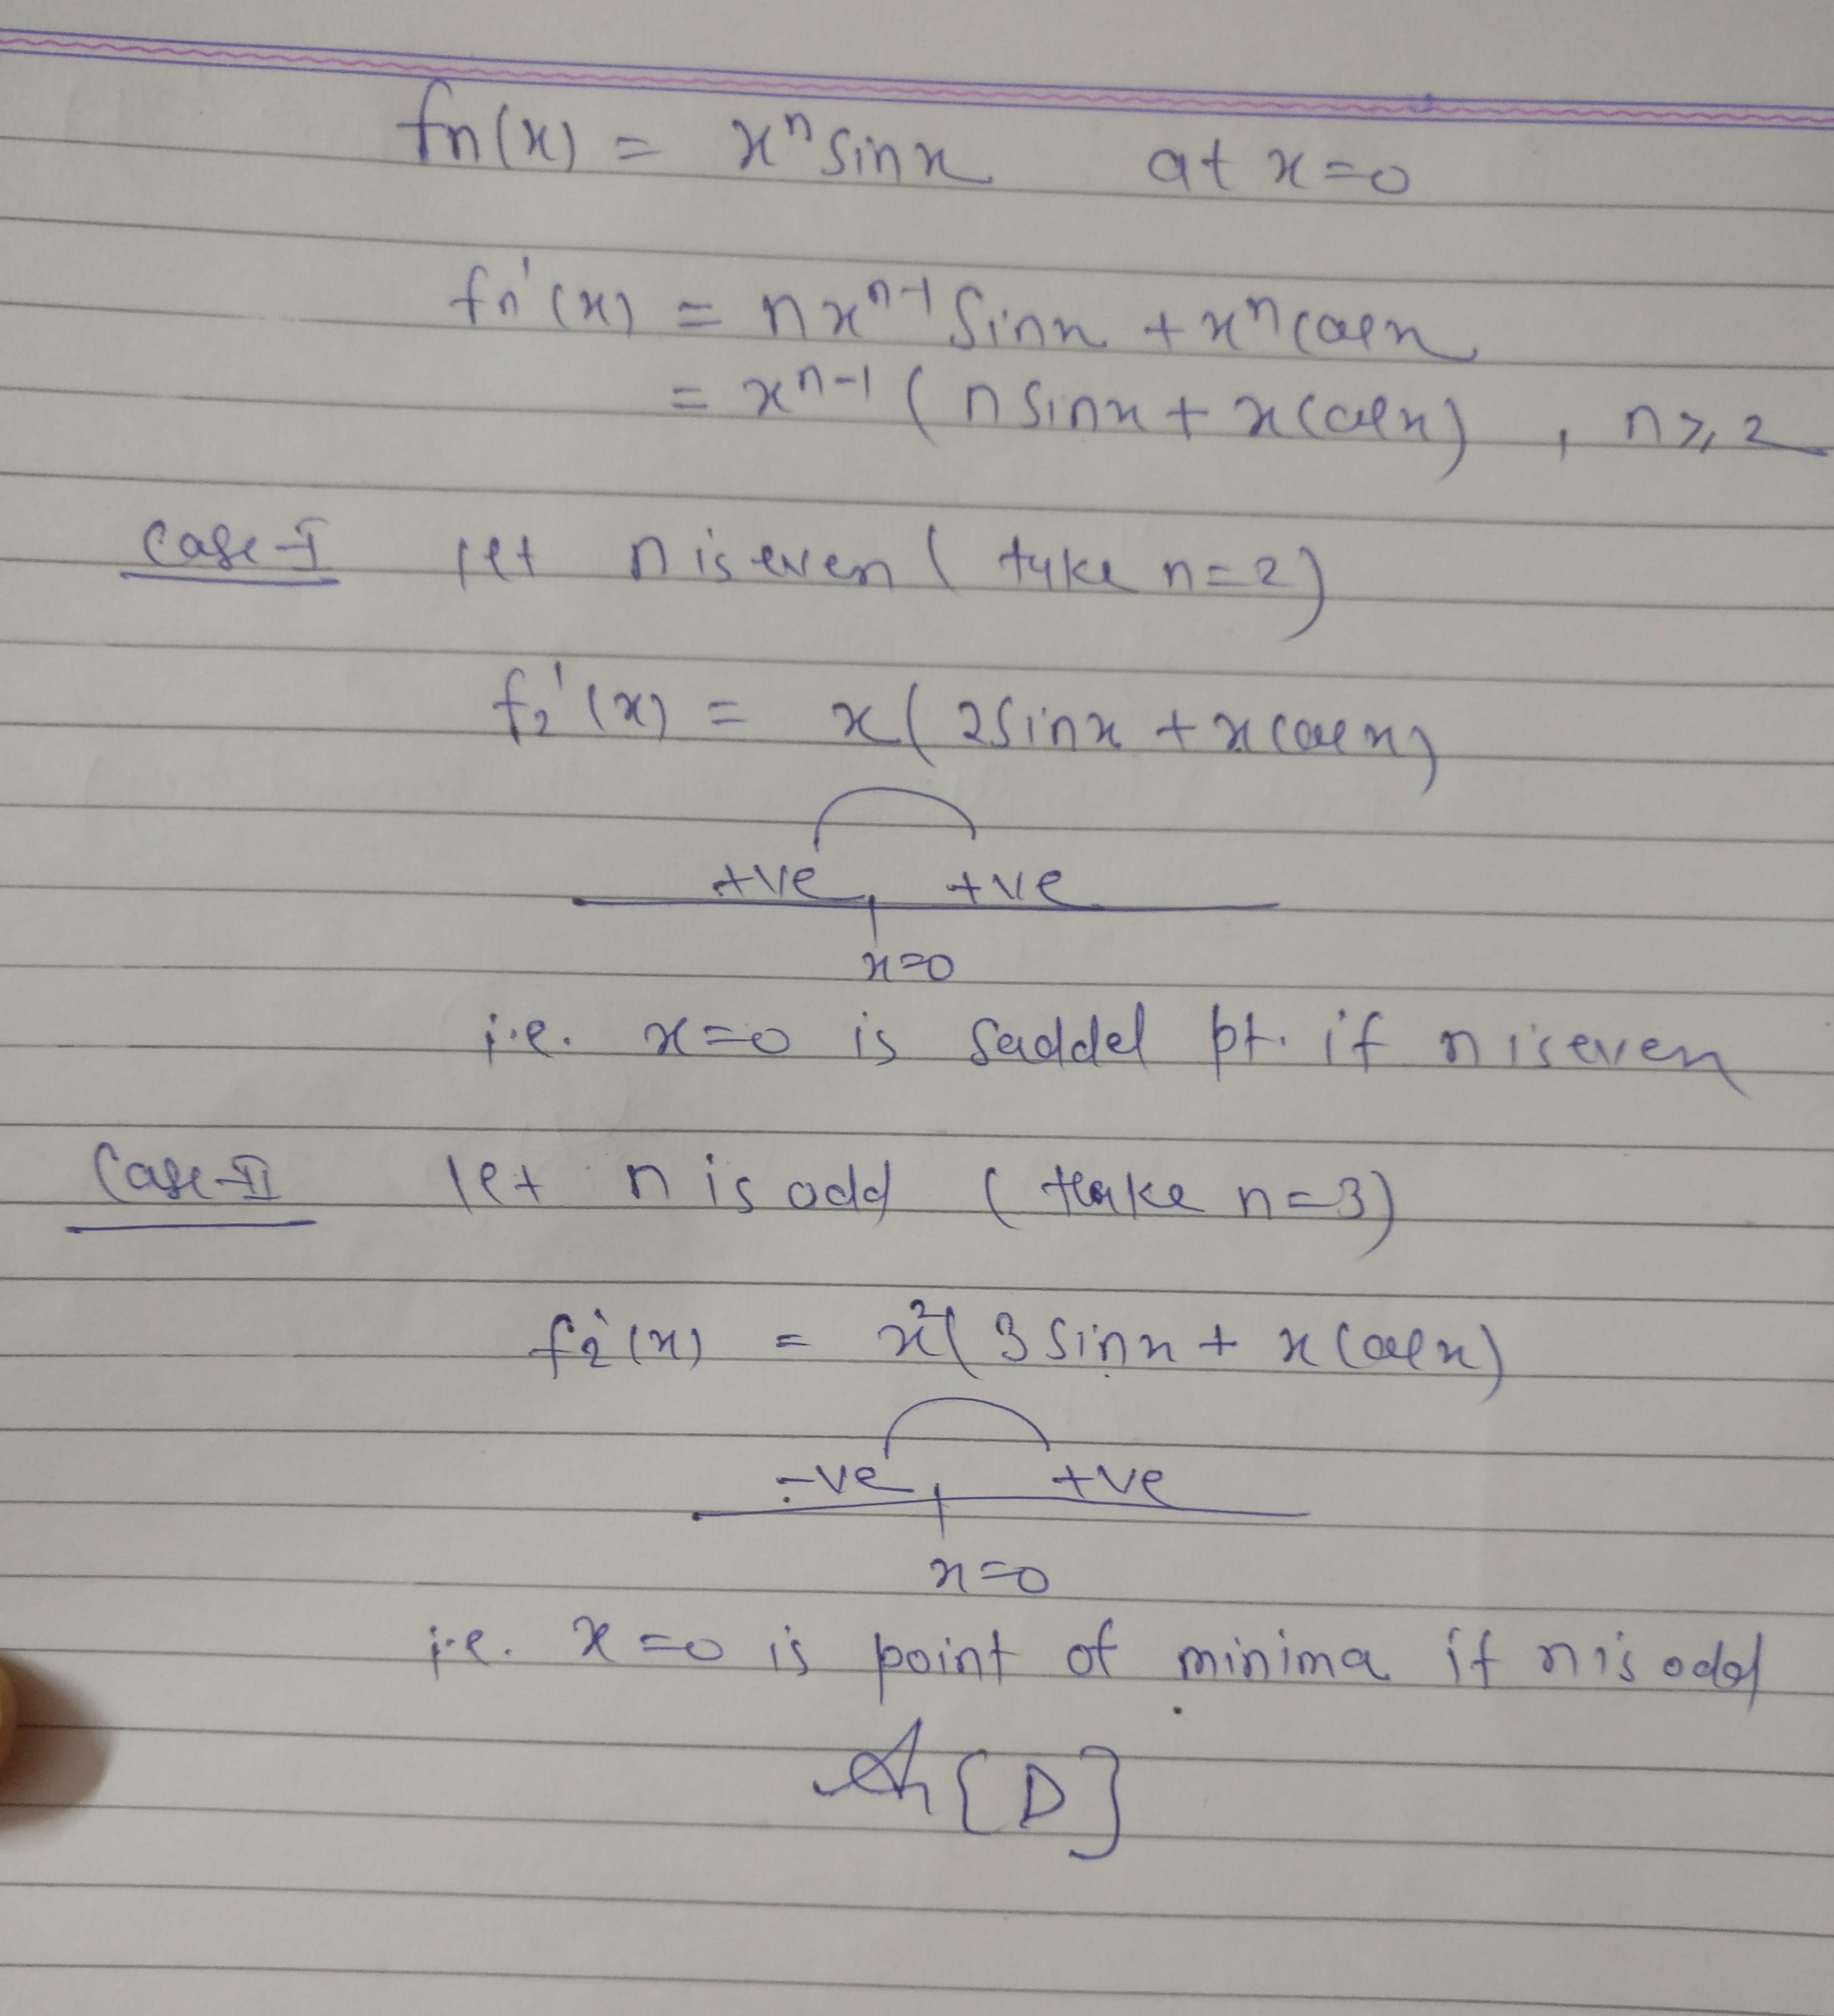 fn(x) = xⁿ sinx at x=0
fn'(x) = nxⁿ⁻¹ sinx + xⁿ cosx
= xⁿ⁻¹ ( n sinx + x cosx) , n ≥ 2
Case-I let n is even ( take n=2)
f₂'(x) = x( 2sinx + x cosx)
+ve +ve
x=0
i.e. x=0 is saddel pt. if n is even
Case-II let n is odd ( take n=3)
f₂'(x) = x²( 3 sinx + x cosx)
-ve +ve
x=0
i.e. x=0 is point of minima if n is odd
A [D]